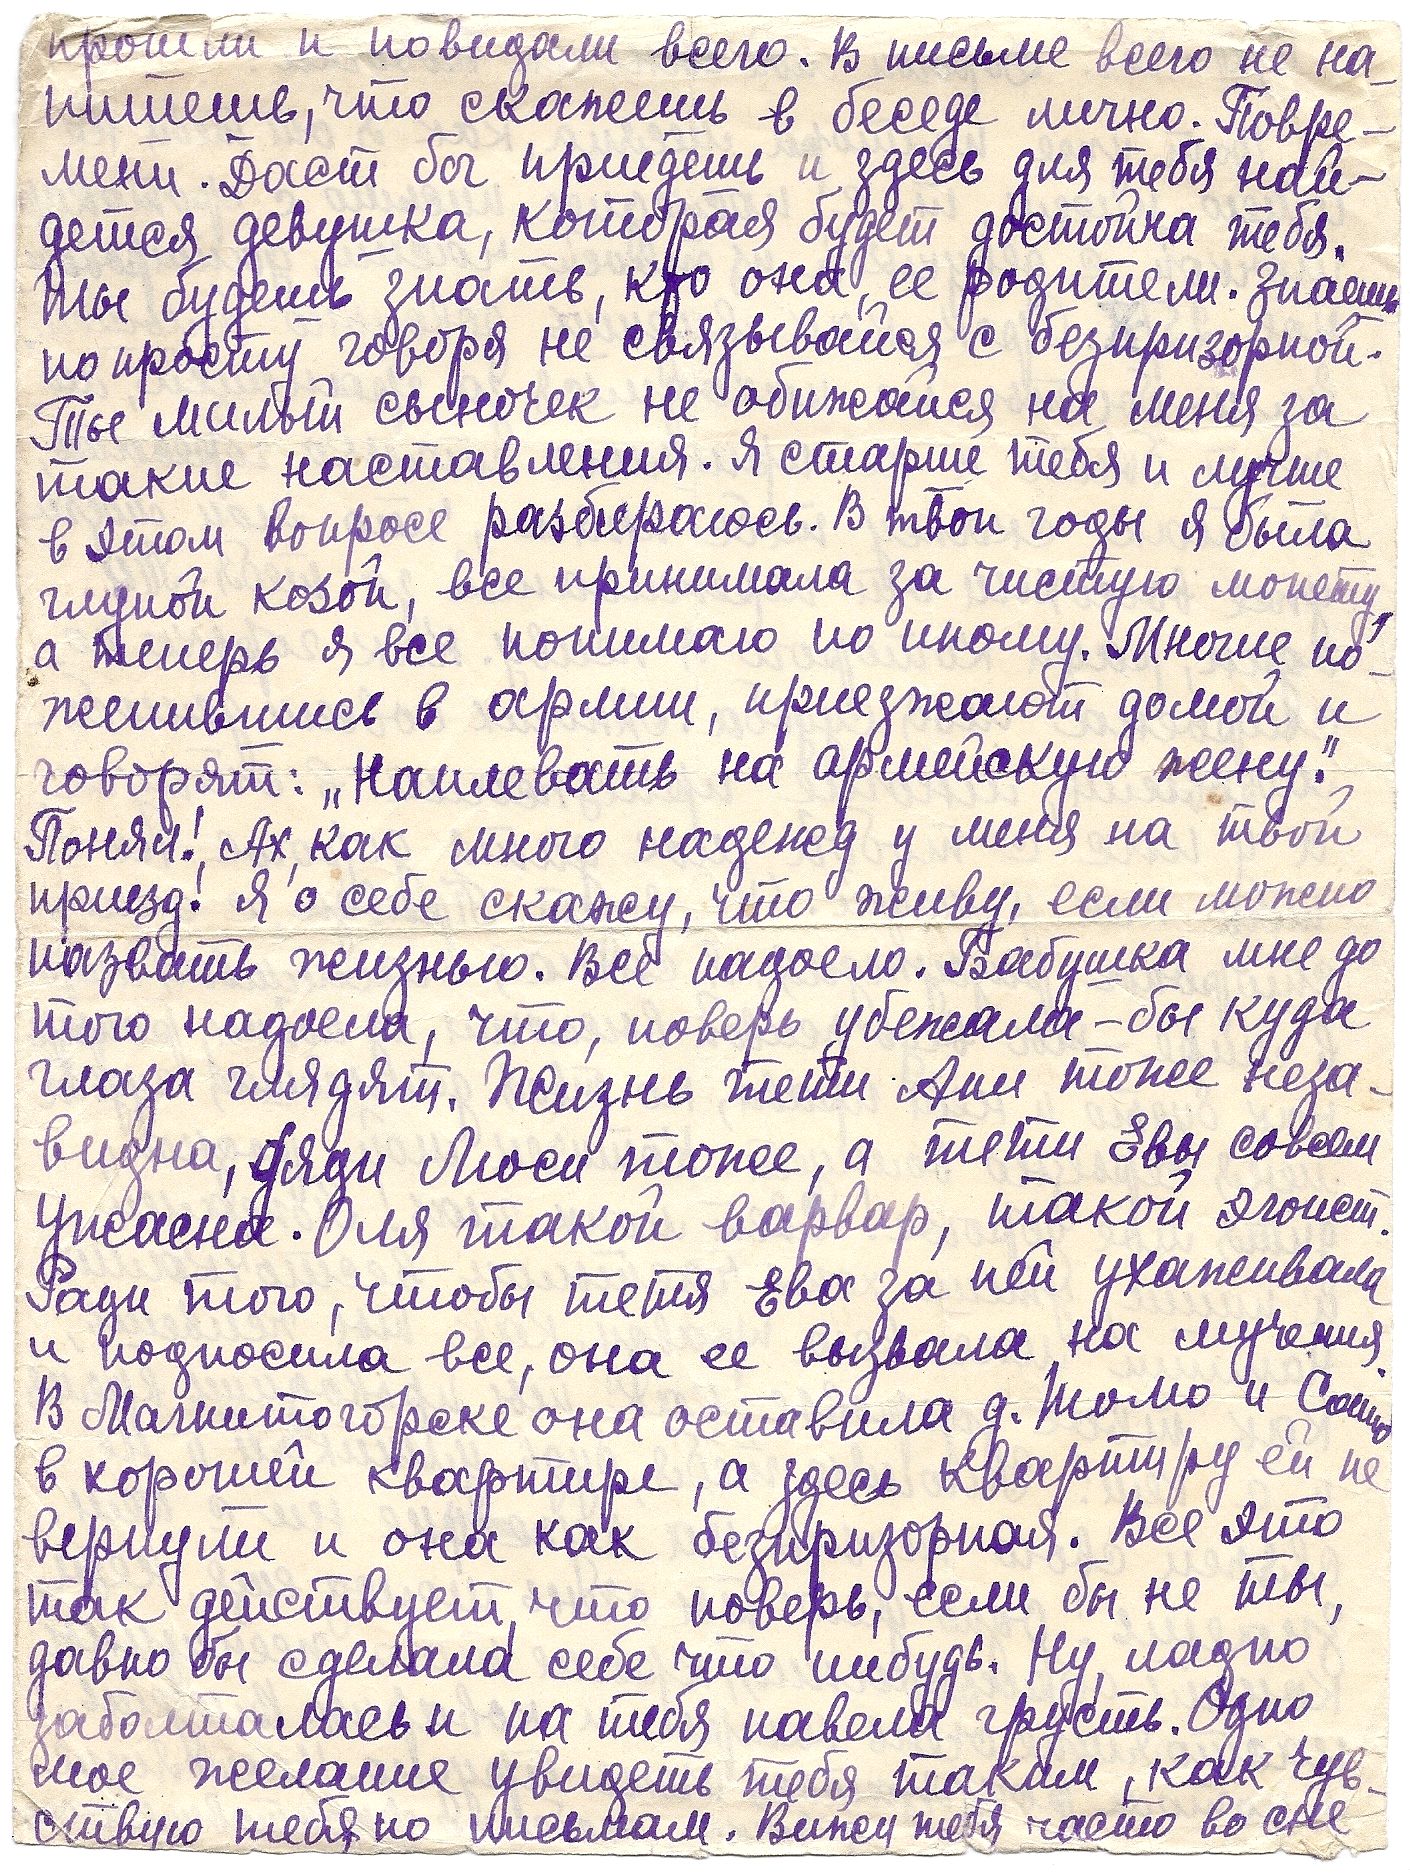 прошли и повидали всего. В письме всего не на-
пишешь, что скажешь в беседе лично. Повре-
мени. Даст бог приедешь и здесь для тебя най-
дется девушка, которая будет достойна тебя.
Ты будешь знать, кто она, ее родители. Знаешь
по просту говоря не связывайся с безпризорной.
Ты милый сыночек не обижайся на меня за
такие наставления. Я старше тебя и лучше
в этом вопросе разбираюсь. В твои годы я была
глупой козой, все принимала за чистую монету,
а теперь я все понимаю по иному. Многие по-
женившись в армии, приезжают домой и
говорят: „Наплевать на армейскую жену."
Понял! Ах, как много надежд у меня на твой
приезд! Я о себе скажу, что живу, если можно
назвать жизнью. Все надоело. Бабушка мне до
того надоела, что, поверь убежала-бы куда
глаза глядят. Жизнь тети Ани тоже неза-
видна, дяди Люси тоже, а тети Евы совсем
ужасна. Оля такой варвар, такой эгоист.
Ради того, чтобы тетя Ева за ней ухаживала
и подносила все, она ее вызвала на мучения.
В Магнитогорске она оставила д. Тому и Сашу
в хорошей квартире, а здесь квартиру ей не
вернули и она как безпризорная. Все это
так действует, что поверь, если бы не ты,
давно бы сделала себе что нибудь. Ну, ладно
заболталась и на тебя навела грусть. Одно
мое желание увидеть тебя таким, как чув-
ствую тебя по письмам. Вижу тебя часто во сне